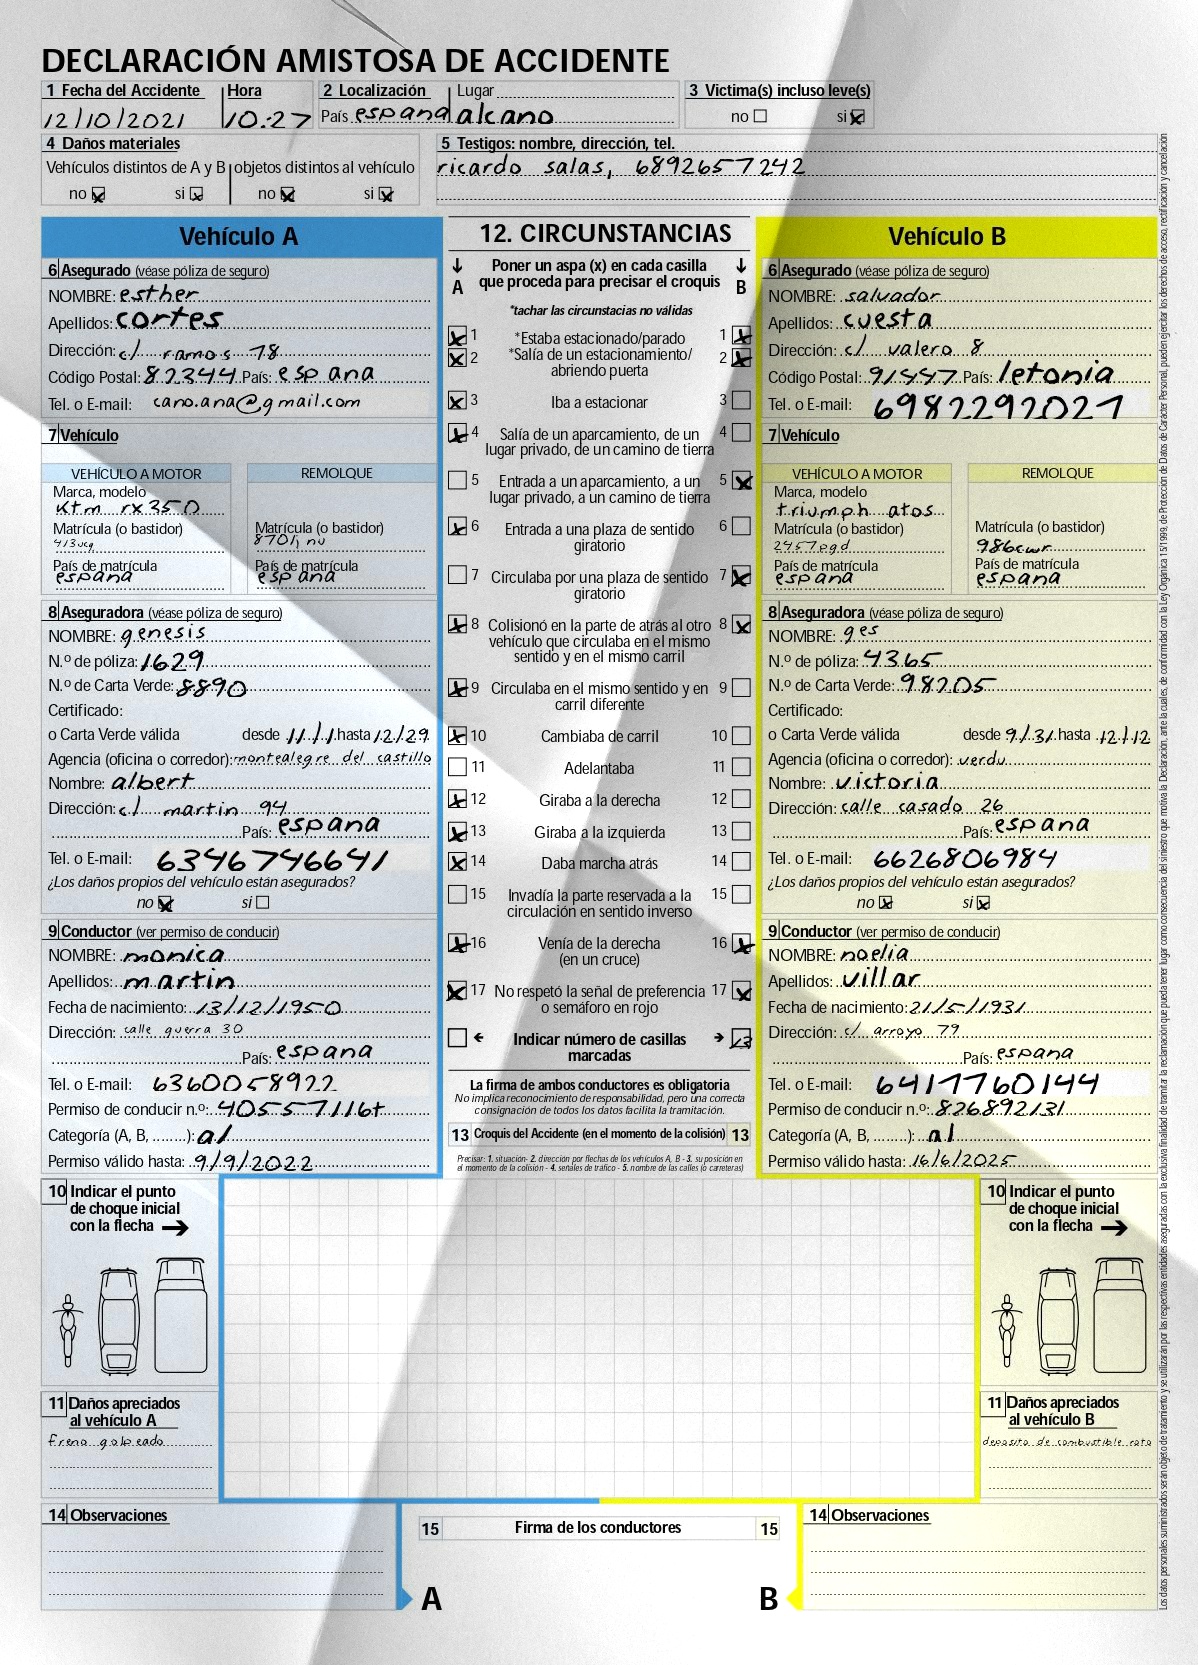 DECLARACIÓN AMISTOSA DE ACCIDENTE
1 Fecha del Accidente Hora 2 Localización Lugar 3 Victima(s) incluso leve(s)
12/10/2021 10:27 País espana alcano no si
4 Daños materiales 5 Testigos: nombre, dirección, tel.
Vehículos distintos de A y B objetos distintos al vehículo ricardo salas, 6892657242
no si no si
Vehículo A
6 Asegurado (véase póliza de seguro)
NOMBRE: esther
Apellidos: cortes
Dirección: c/ ramos 18
Código Postal: 82344 País: espana
Tel. o E-mail: cano.ana@gmail.com
7 Vehículo
VEHÍCULO A MOTOR REMOLQUE
Marca, modelo
ktm rx350
Matrícula (o bastidor) Matrícula (o bastidor)
413ucg 8701jnu
País de matrícula País de matrícula
espana espana
8 Aseguradora (véase póliza de seguro)
NOMBRE: genesis
N.º de póliza: 1629
N.º de Carta Verde: 8890
Certificado:
o Carta Verde válida desde 11/1 hasta 12/29
Agencia (oficina o corredor): montealegre del castillo
Nombre: albert
Dirección: c/ martin 94
País: espana
Tel. o E-mail: 6346746641
¿Los daños propios del vehículo están asegurados?
no si
9 Conductor (ver permiso de conducir)
NOMBRE: monica
Apellidos: martin
Fecha de nacimiento: 13/12/1950
Dirección: calle guerra 30
País: espana
Tel. o E-mail: 6360058922
Permiso de conducir n.º: 40557116t
Categoría (A, B, ........): a1
Permiso válido hasta: 9/9/2022
12. CIRCUNSTANCIAS
Poner un aspa (x) en cada casilla
A que proceda para precisar el croquis B
*tachar las circunstacias no válidas
1 *Estaba estacionado/parado 1
2 *Salía de un estacionamiento/ 2
abriendo puerta
3 Iba a estacionar 3
4 Salía de un aparcamiento, de un 4
lugar privado, de un camino de tierra
5 Entrada a un aparcamiento, a un 5
lugar privado, a un camino de tierra
6 Entrada a una plaza de sentido 6
giratorio
7 Circulaba por una plaza de sentido 7
giratorio
8 Colisionó en la parte de atrás al otro 8
vehículo que circulaba en el mismo
sentido y en el mismo carril
9 Circulaba en el mismo sentido y en 9
carril diferente
10 Cambiaba de carril 10
11 Adelantaba 11
12 Giraba a la derecha 12
13 Giraba a la izquierda 13
14 Daba marcha atrás 14
15 Invadía la parte reservada a la 15
circulación en sentido inverso
16 Venía de la derecha 16
(en un cruce)
17 No respetó la señal de preferencia 17
o semáforo en rojo
Indicar número de casillas 13
marcadas
La firma de ambos conductores es obligatoria
No implica reconocimiento de responsabilidad, pero una correcta
consignación de todos los datos facilita la tramitación.
13 Croquis del Accidente (en el momento de la colisión) 13
Precisar: 1. situación- 2. dirección por flechas de los vehículos A, B - 3. su posición en
el momento de la colisión - 4. señales de tráfico - 5. nombre de las calles (o carreteras)
Vehículo B
6 Asegurado (véase póliza de seguro)
NOMBRE: salvador
Apellidos: cuesta
Dirección: c/ valero 8
Código Postal: 91557 País: letonia
Tel. o E-mail: 6982292021
7 Vehículo
VEHÍCULO A MOTOR REMOLQUE
Marca, modelo
triumph atos
Matrícula (o bastidor) Matrícula (o bastidor)
2457pgd 986cwr
País de matrícula País de matrícula
espana espana
8 Aseguradora (véase póliza de seguro)
NOMBRE: ges
N.º de póliza: 4365
N.º de Carta Verde: 98205
Certificado:
o Carta Verde válida desde 9/31 hasta 12/12
Agencia (oficina o corredor): verdu
Nombre: victoria
Dirección: calle casado 26
País: espana
Tel. o E-mail: 6626806984
¿Los daños propios del vehículo están asegurados?
no si
9 Conductor (ver permiso de conducir)
NOMBRE: noelia
Apellidos: villar
Fecha de nacimiento: 21/5/1931
Dirección: c/ arroyo 79
País: espana
Tel. o E-mail: 6417760144
Permiso de conducir n.º: 826892131
Categoría (A, B, ........): a1
Permiso válido hasta: 16/6/2025
10 Indicar el punto
de choque inicial
con la flecha
11 Daños apreciados
al vehículo A
freno golpeado
10 Indicar el punto
de choque inicial
con la flecha
11 Daños apreciados
al vehículo B
deposito de combustible roto
14 Observaciones
15 Firma de los conductores 15
A B
14 Observaciones
Los datos personales suministrados serán objeto de tratamiento y se utilizarán por las respectivas entidades aseguradas con la exclusiva finalidad de tramitar la reclamación que pueda tener lugar como consecuencia del siniestro que motiva la Declaración, ante la cuales, de conformidad con la Ley Orgánica 15/1999, de Protección de Datos de Carácter Personal, pueden ejercitar los derechos de acceso, rectificación y cancelación